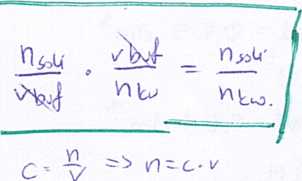 n soli / v buf · v buf / n kw = n soli / n kw.
c = n / v => n = c · v